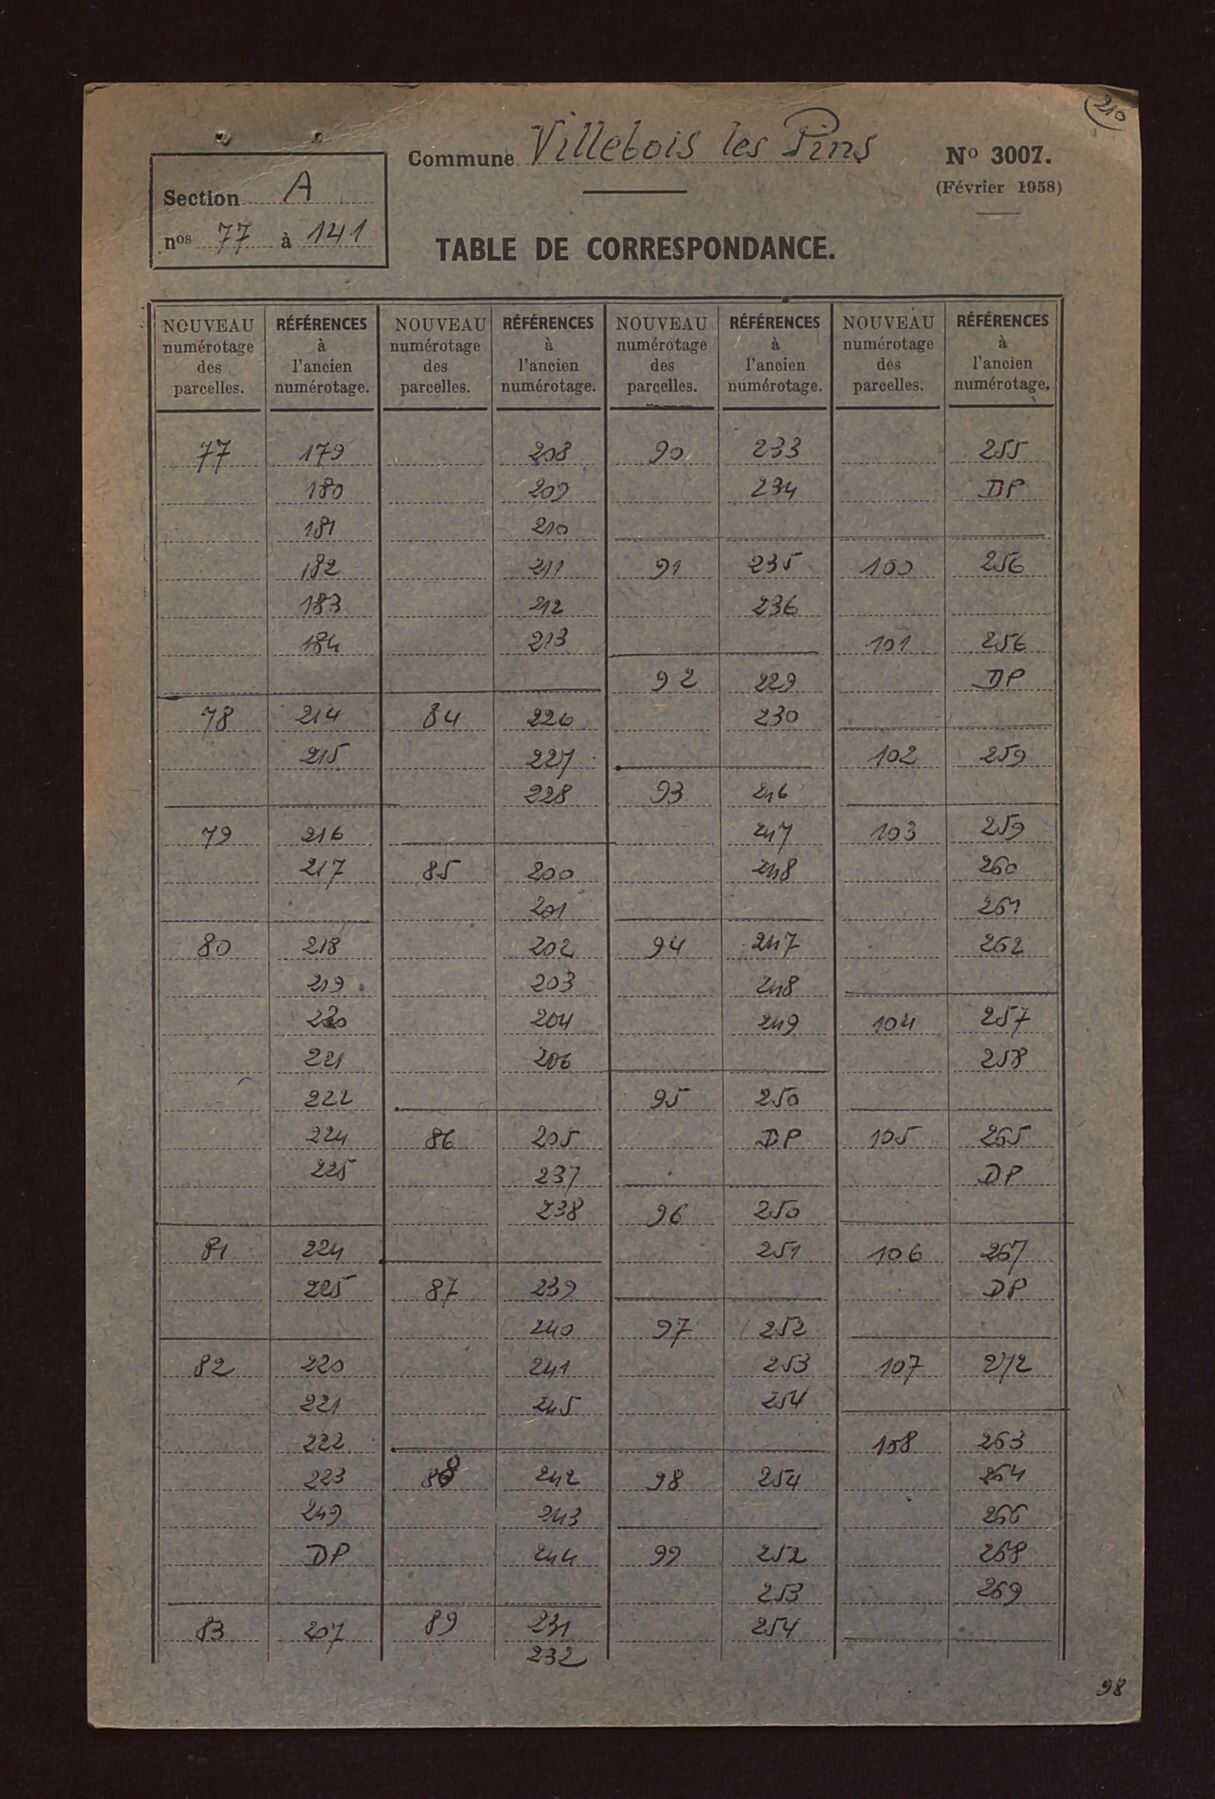 210
Commune Villebois les Pins
No 3007.
(Février 1958)
Section A
nos 77 à 141
TABLE DE CORRESPONDANCE.
NOUVEAU RÉFÉRENCES NOUVEAU RÉFÉRENCES NOUVEAU RÉFÉRENCES NOUVEAU RÉFÉRENCES
numérotage à numérotage à numérotage à numérotage à
des l'ancien des l'ancien des l'ancien des l'ancien
parcelles. numérotage. parcelles. numérotage. parcelles. numérotage. parcelles. numérotage.
77 179 208 90 233 255
180 209 234 DP
181 210
182 211 91 235 100 256
183 212 236
184 213 101 256
92 229 DP
78 214 84 226 230
215 227 102 259
228 93 246
79 216 247 103 259
217 85 200 248 260
201 261
80 218 202 94 247 262
219 203 248
220 204 249 104 257
221 206 258
222 95 250
224 86 205 DP 105 265
225 237 DP
238 96 250
81 224 251 106 267
225 87 239 DP
240 97 252
82 220 241 253 107 272
221 245 254
222 108 263
223 88 242 98 254 264
249 243 266
DP 244 99 252 268
253 269
83 207 89 231 254
232
98